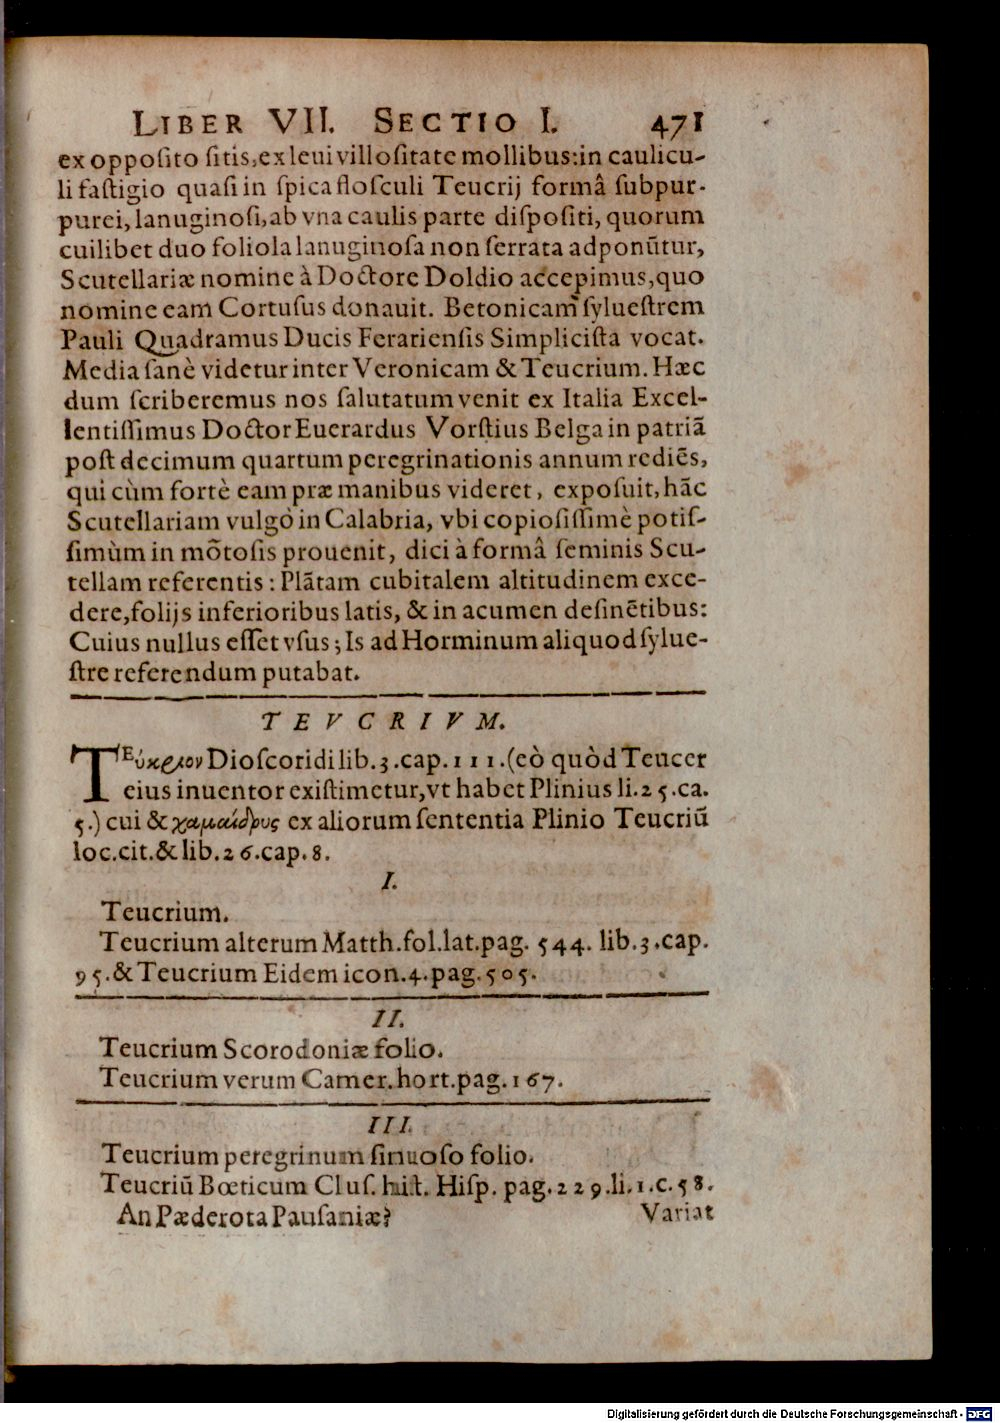 LIBER VII. SECTIO I. 471
ex opposito sitis, ex leui villositate mollibus: in caulicu-
li fastigio quasi in spica flosculi Teucrij formâ subpur-
purei, lanuginosi, ab vna caulis parte dispositi, quorum
cuilibet duo foliola lanuginosa non serrata adponũtur,
Scutellariæ nomine à Doctore Doldio accepimus, quo
nomine eam Cortusus donauit. Betonicam syluestrem
Pauli Quadramus Ducis Ferariensis Simplicista vocat.
Media sanè videtur inter Veronicam & Teucrium. Hæc
dum scriberemus nos salutatum venit ex Italia Excel-
lentissimus Doctor Euerardus Vorstius Belga in patriã
post decimum quartum peregrinationis annum rediẽs,
qui cùm fortè eam præ manibus videret, exposuit, hãc
Scutellariam vulgò in Calabria, vbi copiosissimè potis-
simùm in mõtosis prouenit, dici à formâ seminis Scu-
tellam referentis: Plãtam cubitalem altitudinem exce-
dere, folijs inferioribus latis, & in acumen desinẽtibus:
Cuius nullus esset vsus; Is ad Horminum aliquod sylue-
stre referendum putabat.
TEVCRIVM.
ΤΕύκριον Dioscoridi lib.3.cap.111.(eò quòd Teucer
eius inuentor existimetur, vt habet Plinius li.25.ca.
5.) cui & χαμαίδρυς ex aliorum sententia Plinio Teucriũ
loc.cit. & lib.26.cap.8.
I.
Teucrium.
Teucrium alterum Matth.fol.lat.pag. 544. lib.3.cap.
95. & Teucrium Eidem icon.4.pag.505.
II.
Teucrium Scorodoniæ folio.
Teucrium verum Camer.hort.pag.167.
III.
Teucrium peregrinum sinuoso folio.
Teucriũ Bœticum Clus. hist. Hisp. pag.229.li.1.c.58.
An Pæderota Pausaniæ? Variat
Digitalisierung gefördert durch die Deutsche Forschungsgemeinschaft - DFG